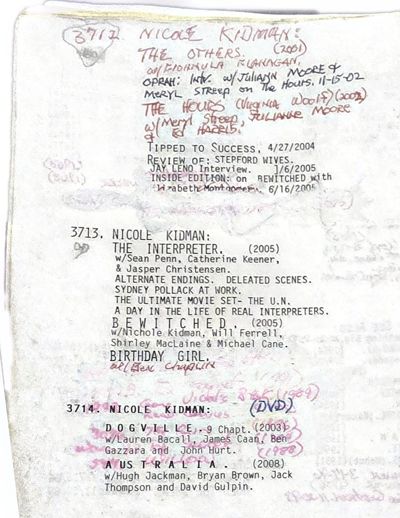 3712 NICOLE KIDMAN:
THE OTHERS. (2001)
w/FIONNULA FLANAGAN.
OPRAH: INTV. w/JULIANN MOORE &
MERYL STREEP on THE HOURS. 11-15-02
THE HOURS (VIRGINIA WOOLF) (2002)
w/MERYL STREEP, JULIANNE MOORE
& ED HARRIS.
TIPPED TO SUCCESS, 4/27/2004
REVIEW OF: STEPFORD WIVES.
JAY LENO Interview. 1/6/2005
INSIDE EDITION: on BEWITCHED with
Elizabeth Montgomery. 6/16/2005
3713. NICOLE KIDMAN:
THE INTERPRETER. (2005)
w/Sean Penn, Catherine Keener,
& Jasper Christensen.
ALTERNATE ENDINGS. DELEATED SCENES.
SYDNEY POLLACK AT WORK.
THE ULTIMATE MOVIE SET- THE U.N.
A DAY IN THE LIFE OF REAL INTERPRETERS.
BEWITCHED. (2005)
w/Nichole Kidman, Will Ferrell,
Shirley MacLaine & Michael Cane.
BIRTHDAY GIRL.
w/Ben Chaplin
3714. NICOLE KIDMAN: (DVD)
DOGVILLE. 9 Chapt. (2003)
w/Lauren Bacall, James Caan, Ben
Gazzara and John Hurt.
AUSTRALIA. (2008)
w/Hugh Jackman, Bryan Brown, Jack
Thompson and David Gulpin.